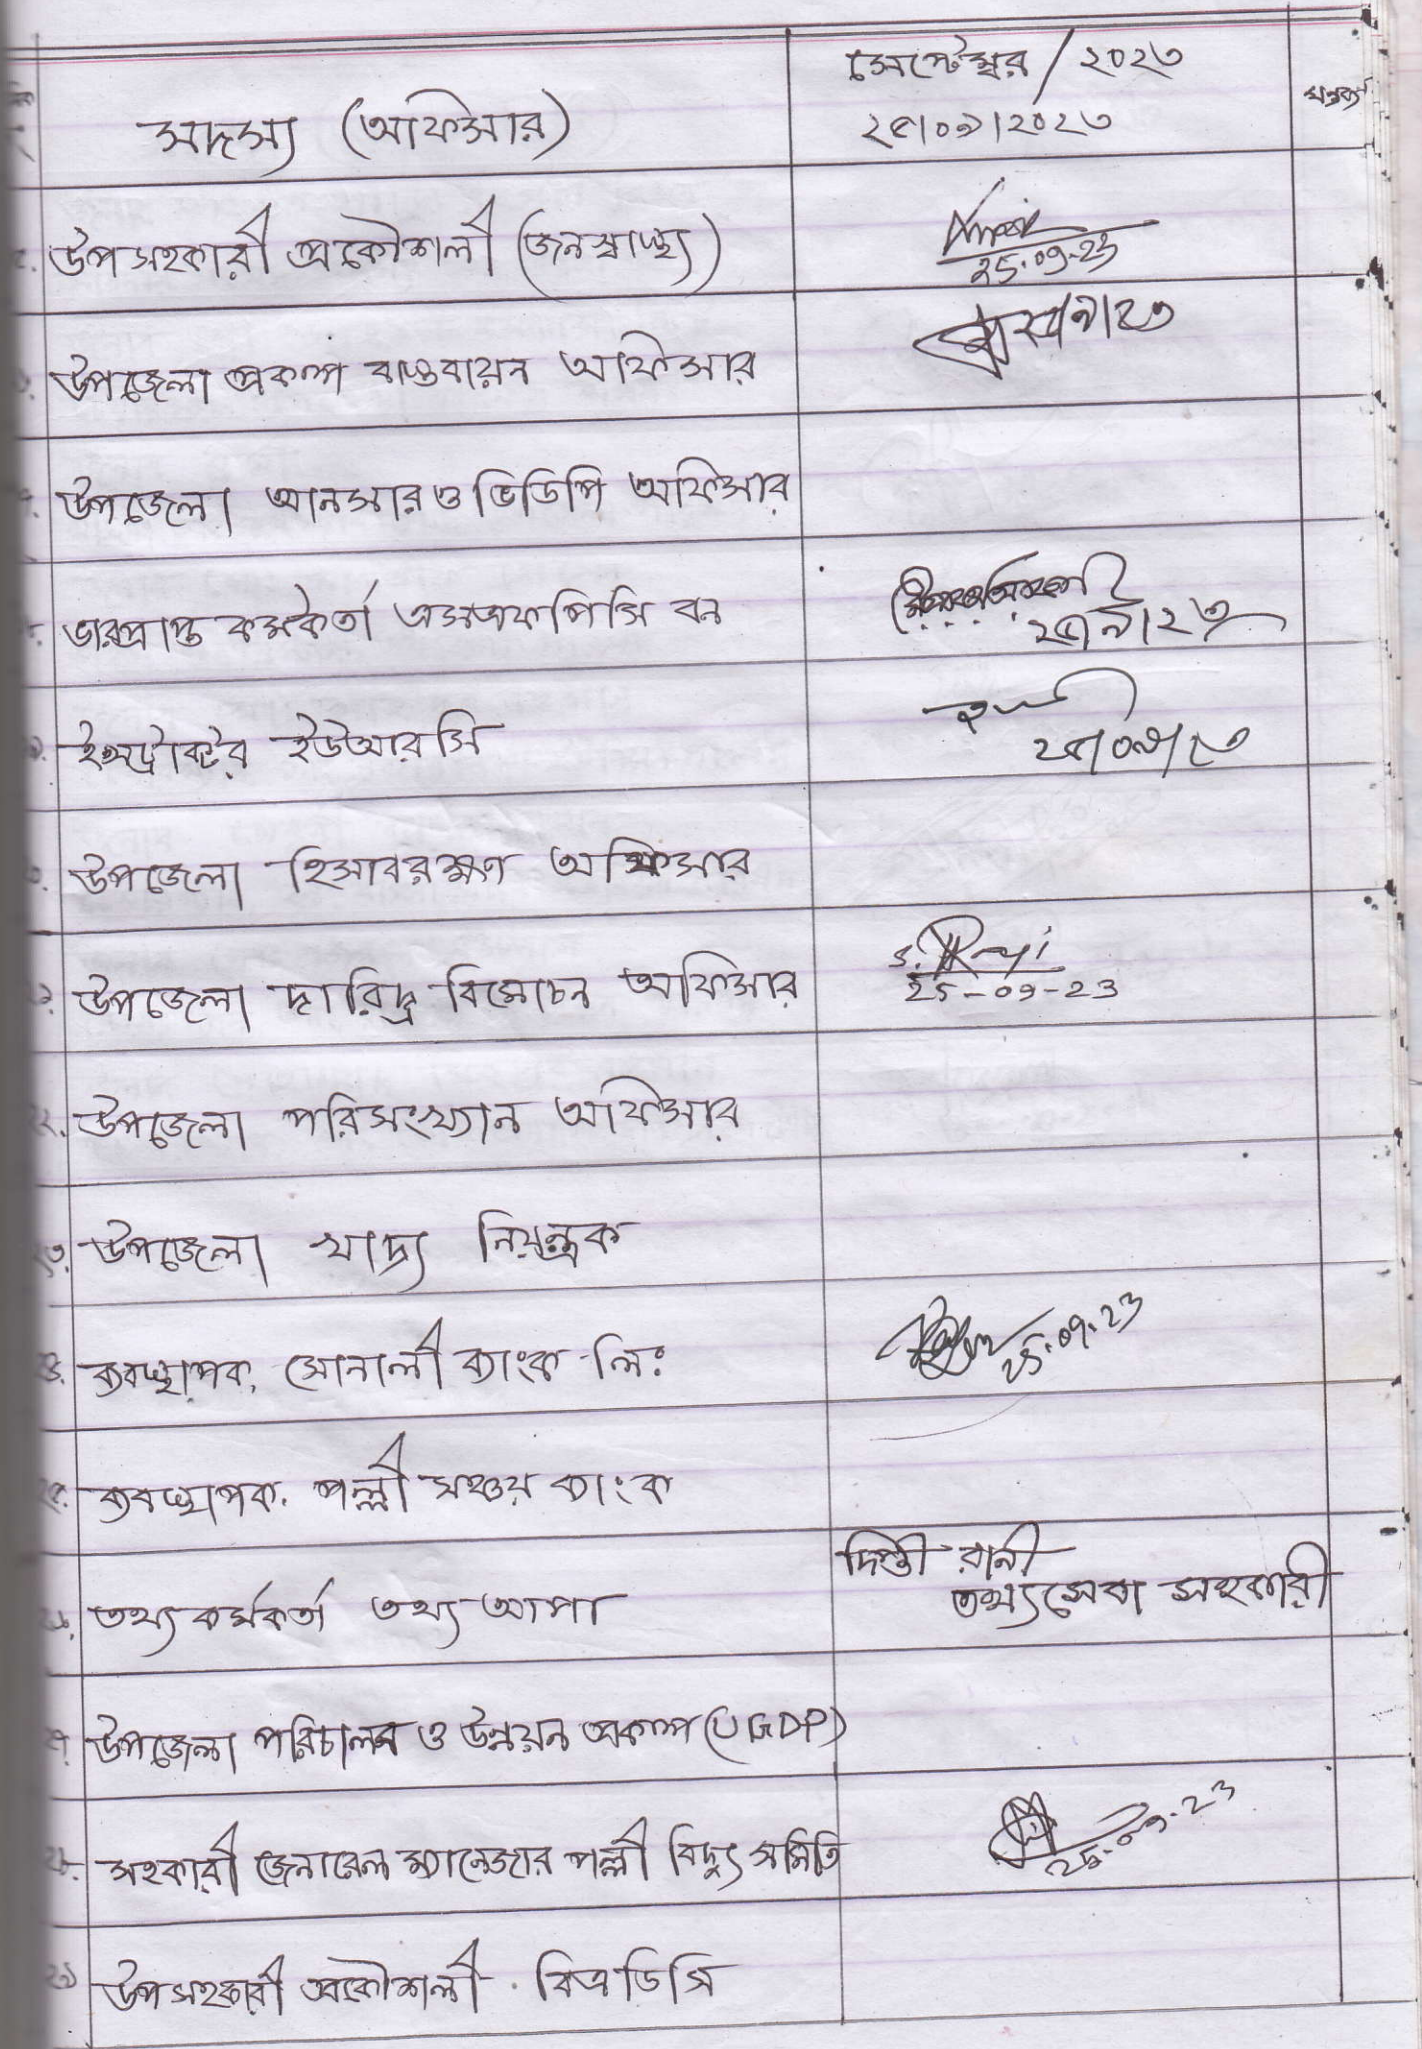 সেপ্টেম্বর / ২০২৩
সদস্য (অফিসার)
২৫/০৯/২০২৩
মন্তব্য
উপসহকারী প্রকৌশলী (জনস্বাস্থ্য)
25.09.23
উপজেলা প্রকল্প বাস্তবায়ন অফিসার
২৫/৯/২৩
উপজেলা আনসার ও ভিডিপি অফিসার
ভারপ্রাপ্ত কর্মকর্তা এসএফপিসি বন
২৫/৯/২৩
ইন্সট্রাক্টর ইউআরসি
২৫/০৯/২৩
উপজেলা হিসাবরক্ষণ অফিসার
উপজেলা দারিদ্র বিমোচন অফিসার
25-09-23
২২. উপজেলা পরিসংখ্যান অফিসার
২৩. উপজেলা খাদ্য নিয়ন্ত্রক
২৪. ব্যবস্থাপক, সোনালী ব্যাংক লি:
25.09.23
২৫. ব্যবস্থাপক, পল্লী সঞ্চয় ব্যাংক
দিপ্তী রানী
২৬. তথ্য কর্মকর্তা তথ্য আপা
তথ্যসেবা সহকারী
২৭. উপজেলা পরিচালন ও উন্নয়ন প্রকল্প (UGDP)
২৮. সহকারী জেনারেল ম্যানেজার পল্লী বিদ্যু সমিতি
25.09.23
২৯ উপসহকারী প্রকৌশলী. বিএডিসি